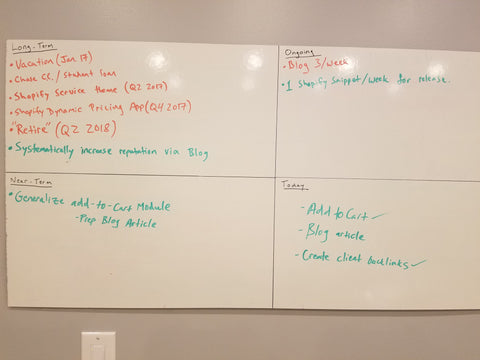 Long-Term
• Vacation (Jan 17)
• Chase CC / Student loan
• Shopify Service theme (Q2 2017)
• Shopify Dynamic Pricing App (Q4 2017)
• "Retire" (Q2 2018)
• Systematically increase reputation via Blog
Ongoing
• Blog 3/week
• 1 Shopify Snippet/week for release.
Near-Term
• Generalize add-to-Cart Module
- Prep Blog Article
Today
- Add to Cart ✓
- Blog article
- Create client backlinks ✓